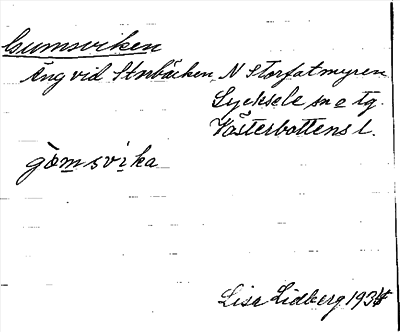 Gumsviken
Äng vid Storbäcken, N Storfatmyren
Lycksele sn o tg.
Västerbottens l.
gòmsvika
Lisa Lidberg 1934